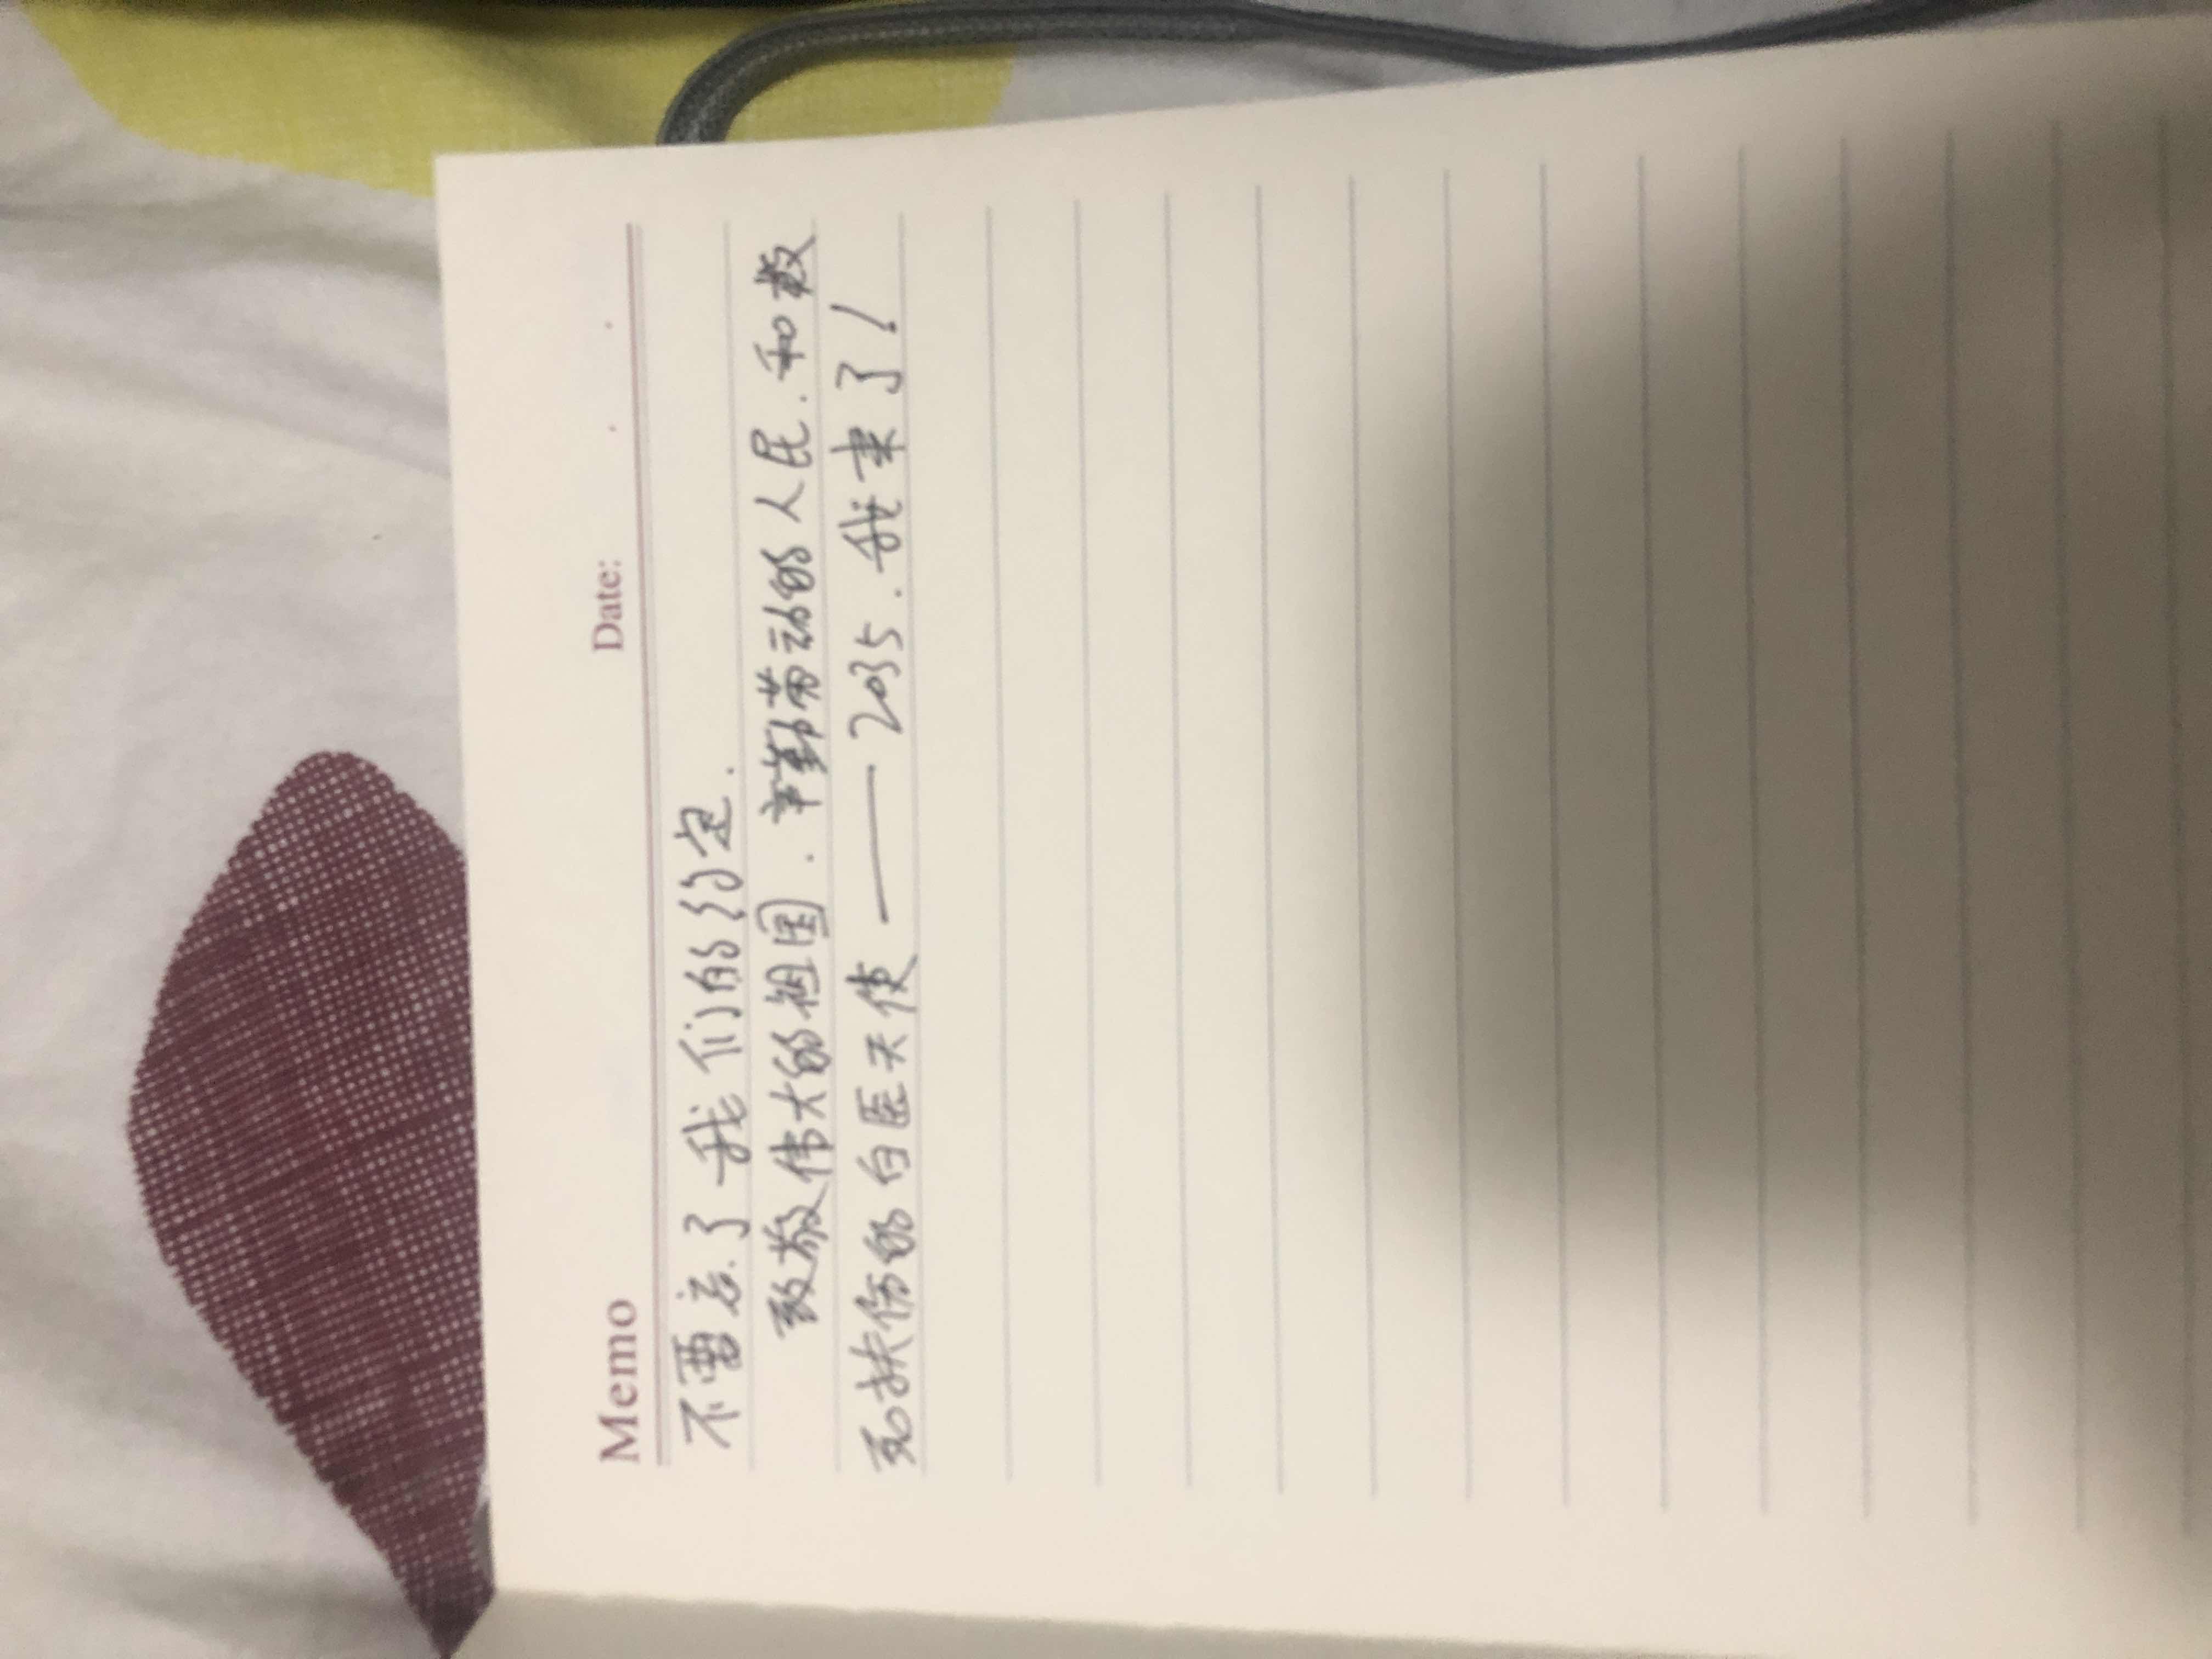 Memo Date:
不要忘了我们的约定.
致敬伟大的祖国.辛勤劳动的人民.和救
死扶伤的白医天使——2035.我来了!